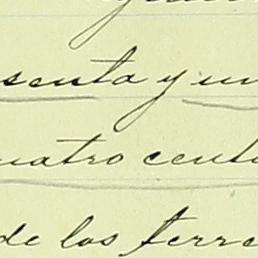 senta y un
uatro centi
de los terre